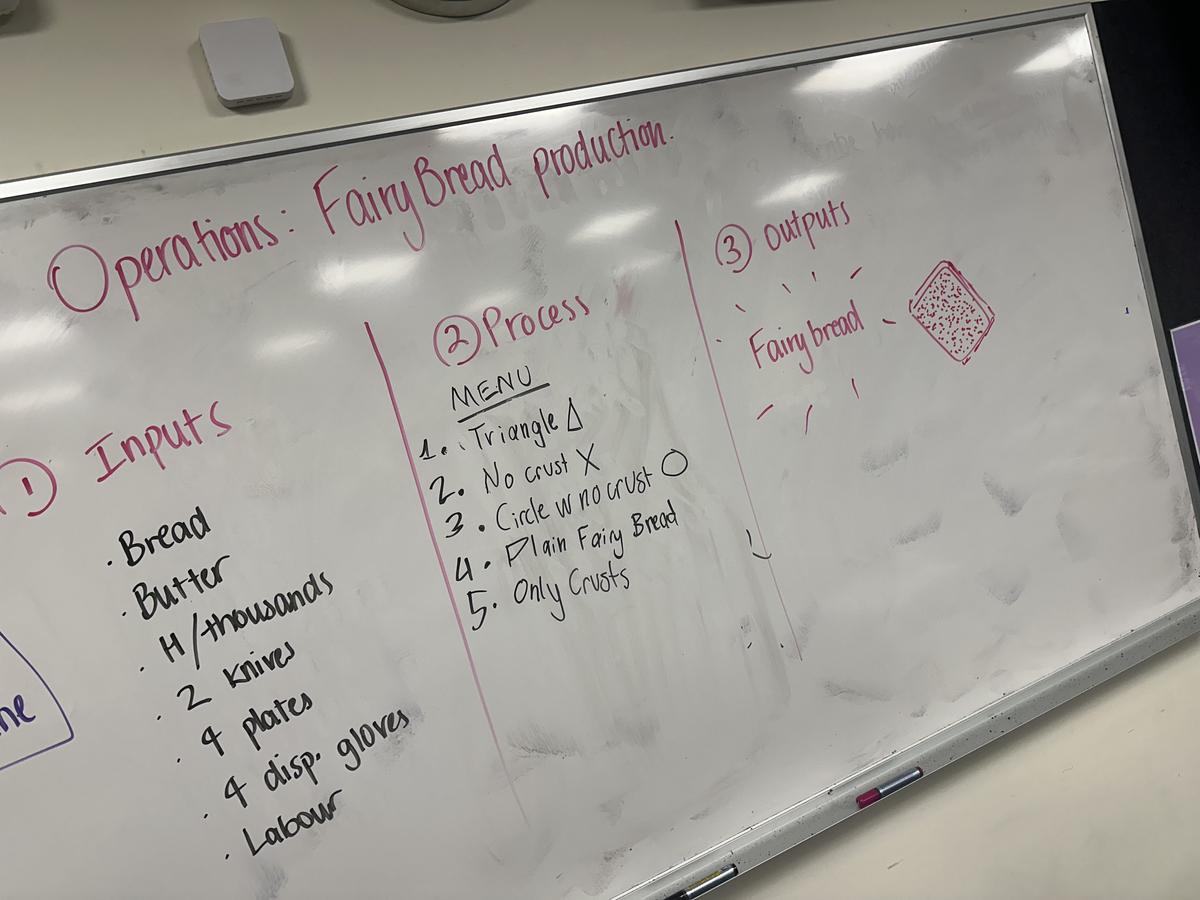 Operations: Fairy Bread production.
① Inputs
· Bread
· Butter
· H/thousands
· 2 knives
· 4 plates
· 4 disp. gloves
· Labour
② Process
MENU
1. Triangle △
2. No crust X
3. Circle w no crust ○
4. Plain Fairy Bread
5. Only Crusts
③ outputs
Fairy bread